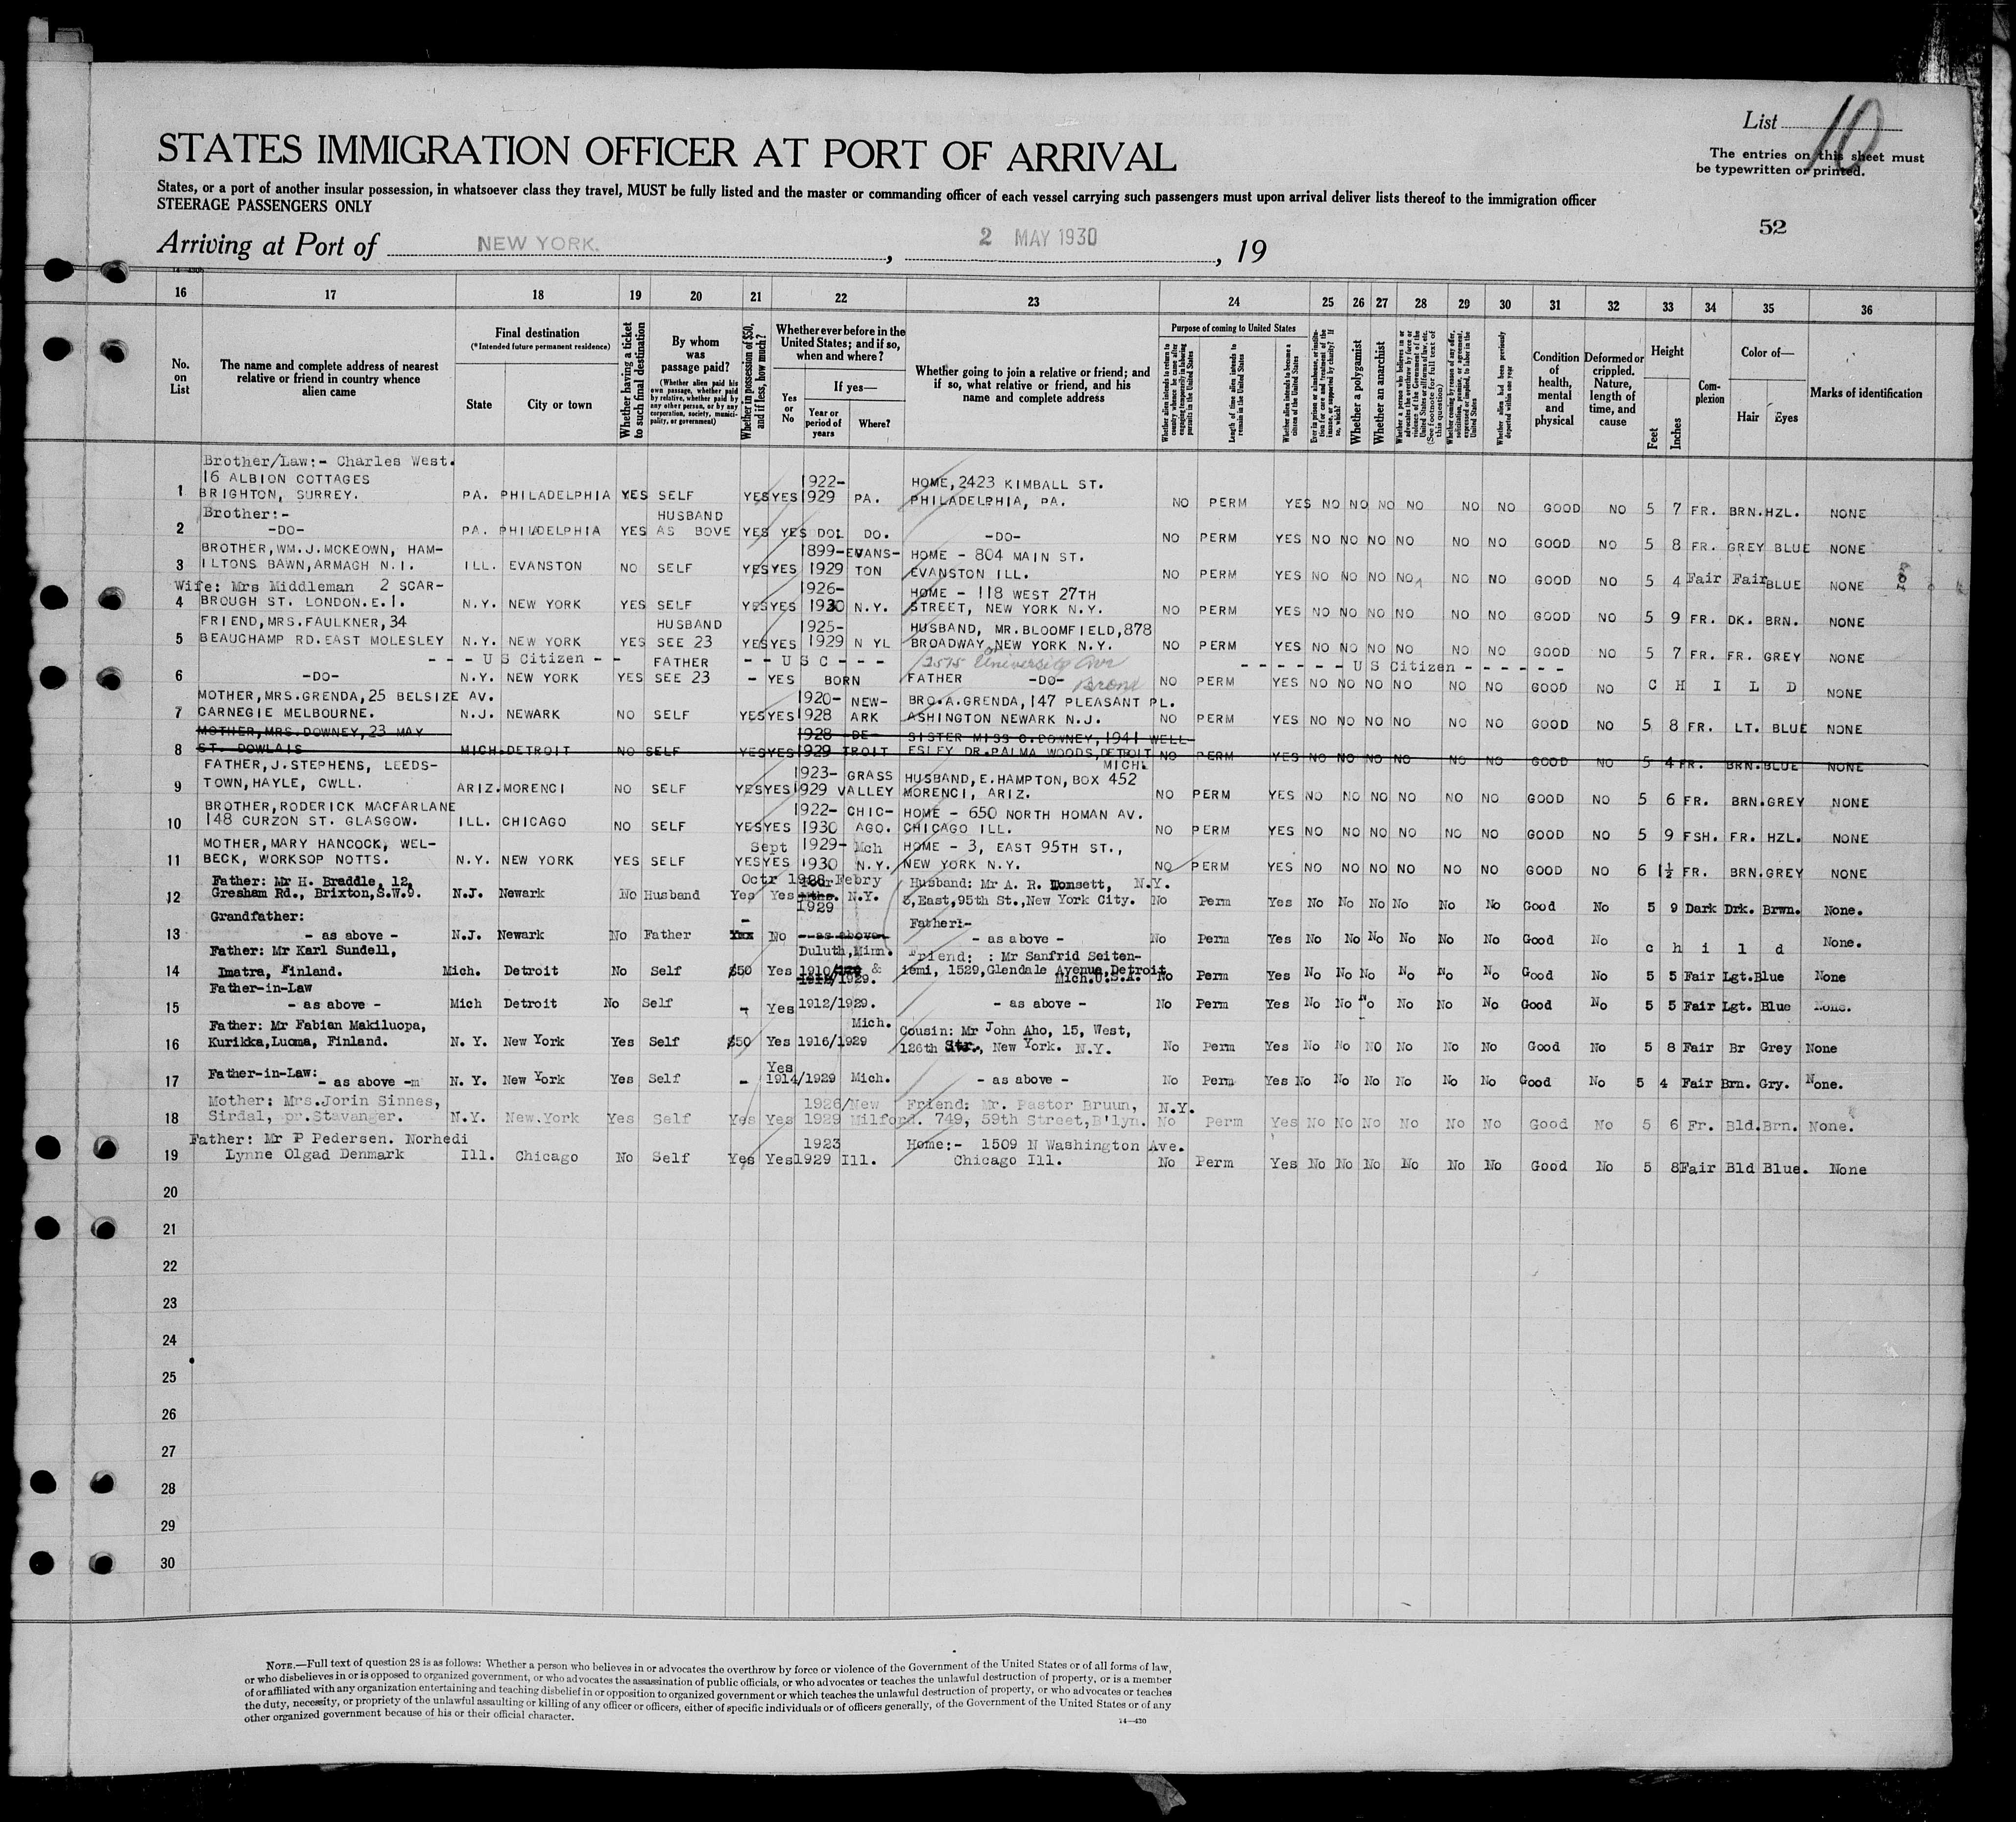 List 10
The entries on this sheet must
be typewritten or printed.
STATES IMMIGRATION OFFICER AT PORT OF ARRIVAL
States, or a port of another insular possession, in whatsoever class they travel, MUST be fully listed and the master or commanding officer of each vessel carrying such passengers must upon arrival deliver lists thereof to the immigration officer
STEERAGE PASSENGERS ONLY
52
Arriving at Port of NEW YORK. , 2 MAY 1930 , 19
16 17 18 19 20 21 22 23 24 25 26 27 28 29 30 31 32 33 34 35 36
No. on List
The name and complete address of nearest relative or friend in country whence alien came
Final destination
(*Intended future permanent residence)
State
City or town
Whether having a ticket to such final destination
By whom was passage paid?
(Whether alien paid his own passage, whether paid by relative, whether paid by any other person, or by any corporation, society, municipality, or government)
Whether in possession of $50, and if less, how much?
Whether ever before in the United States; and if so, when and where?
Yes or No
If yes—
Year or period of years
Where?
Whether going to join a relative or friend; and if so, what relative or friend, and his name and complete address
Purpose of coming to United States
Whether alien intends to return to country whence he came after engaging temporarily in laboring pursuits in the United States
Length of time alien intends to remain in the United States
Whether alien intends to become a citizen of the United States
Ever in prison or almshouse, or institution for care and treatment of the insane, or supported by charity? If so, which?
Whether a polygamist
Whether an anarchist
Whether a person who believes in or advocates the overthrow by force or violence of the Government of the United States or all forms of law, etc. (See footnote for full text of this question)
Whether coming by reason of any offer, solicitation, promise, or agreement, expressed or implied, to labor in the United States
Whether alien had been previously deported within one year
Condition of health, mental and physical
Deformed or crippled. Nature, length of time, and cause
Height
Feet
Inches
Complexion
Color of—
Hair
Eyes
Marks of identification
Brother/Law:- Charles West.
16 ALBION COTTAGES 1922- HOME, 2423 KIMBALL ST.
1 BRIGHTON, SURREY. PA. PHILADELPHIA YES SELF YES YES 1929 PA. PHILADELPHIA, PA. NO PERM YES NO NO NO NO NO NO GOOD NO 5 7 FR. BRN. HZL. NONE
Brother:- HUSBAND
2 -DO- PA. PHILADELPHIA YES AS BOVE YES YES DO: DO. -DO- NO PERM YES NO NO NO NO NO NO GOOD NO 5 8 FR. GREY BLUE NONE
BROTHER, WM. J. MCKEOWN, HAM- 1899- EVANS- HOME - 804 MAIN ST.
3 ILTONS BAWN, ARMAGH N.I. ILL. EVANSTON NO SELF YES YES 1929 TON EVANSTON ILL. NO PERM YES NO NO NO NO NO NO GOOD NO 5 4 Fair Fair BLUE NONE
Wife: Mrs Middleman 2 SCAR- 1926- HOME - 118 WEST 27TH
4 BROUGH ST. LONDON. E.I. N.Y. NEW YORK YES SELF YES YES 1930 N.Y. STREET, NEW YORK N.Y. NO PERM YES NO NO NO NO NO NO GOOD NO 5 9 FR. DK. BRN. NONE
FRIEND, MRS. FAULKNER, 34 HUSBAND 1925- HUSBAND, MR. BLOOMFIELD, 878
5 BEAUCHAMP RD. EAST MOLESLEY N.Y. NEW YORK YES SEE 23 YES YES 1929 N YL BROADWAY, NEW YORK N.Y. NO PERM YES NO NO NO NO NO NO GOOD NO 5 7 FR. FR. GREY NONE
- - - U S Citizen - - FATHER - - U S C - - - 2575 University Ave - - - - - - U S Citizen - - - - - -
6 -DO- N.Y. NEW YORK YES SEE 23 - YES BORN FATHER -DO- Bronx NO PERM YES NO NO NO NO NO NO GOOD NO C H I L D NONE
MOTHER, MRS. GRENDA, 25 BELSIZE AV. 1920- NEW- BRO. A. GRENDA, 147 PLEASANT PL.
7 CARNEGIE MELBOURNE. N.J. NEWARK NO SELF YES YES 1928 ARK ASHINGTON NEWARK N.J. NO PERM YES NO NO NO NO NO NO GOOD NO 5 8 FR. LT. BLUE NONE
MOTHER, MRS. DOWNEY, 23 MAY 1928 DE- SISTER MISS C. DOWNEY, 1941 WELL-
8 ST. DOWLAIS MICH. DETROIT NO SELF YES YES 1929 TROIT ESLEY DR. PALMA WOODS, DETROIT MICH. NO PERM YES NO NO NO NO NO NO GOOD NO 5 4 FR. BRN. BLUE NONE
FATHER, J. STEPHENS, LEEDS- 1923- GRASS HUSBAND, E. HAMPTON, BOX 452
9 TOWN, HAYLE, CWLL. ARIZ. MORENCI NO SELF YES YES 1929 VALLEY MORENCI, ARIZ. NO PERM YES NO NO NO NO NO NO GOOD NO 5 6 FR. BRN. GREY NONE
BROTHER, RODERICK MACFARLANE 1922- CHIC- HOME - 650 NORTH HOMAN AV.
10 148 CURZON ST. GLASGOW. ILL. CHICAGO NO SELF YES YES 1930 AGO. CHICAGO ILL. NO PERM YES NO NO NO NO NO NO GOOD NO 5 9 FSH. FR. HZL. NONE
MOTHER, MARY HANCOCK, WEL- Sept 1929- Mch HOME - 3, EAST 95TH ST.,
11 BECK, WORKSOP NOTTS. N.Y. NEW YORK YES SELF YES YES 1930 N.Y. NEW YORK N.Y. NO PERM YES NO NO NO NO NO NO GOOD NO 6 1½ FR. BRN. GREY NONE
Father: Mr H. Braddle, 12, Octr 1928 Febry Husband: Mr A. R. Monsett, N.Y.
12 Gresham Rd., Brixton, S.W.9. N.J. Newark No Husband Yes Yes 1929 N.Y. 3, East, 95th St., New York City. No Perm Yes No No No No No No Good No 5 9 Dark Drk. Brwn. None.
Grandfather: - Father:-
13 - as above - N.J. Newark No Father Yes No - as above - - as above - No Perm Yes No No No No No No Good No c h i l d None.
Father: Mr Karl Sundell, Duluth, Minn. Friend: : Mr Sanfrid Seiten-
14 Imatra, Finland. Mich. Detroit No Self $50 Yes 1910 & 1912/1929. iemi, 1529, Glendale Avenue, Detroit Mich. U.S.A. No Perm Yes No No No No No No Good No 5 5 Fair Lgt. Blue None
Father-in-Law
15 - as above - Mich Detroit No Self - Yes 1912/1929. - as above - No Perm Yes No No No No No No Good No 5 5 Fair Lgt. Blue None.
Father: Mr Fabian Makiluopa, Mich. Cousin: Mr John Aho, 15, West,
16 Kurikka, Luoma, Finland. N. Y. New York Yes Self $50 Yes 1916/1929 126th Str., New York. N.Y. No Perm Yes No No No No No No Good No 5 8 Fair Br Grey None
Father-in-Law: Yes
17 - as above -m N. Y. New York Yes Self - 1914/1929 Mich. - as above - No Perm Yes No No No No No No Good No 5 4 Fair Brn. Gry. None.
Mother: Mrs. Jorin Sinnes, 1926/New Friend: Mr. Pastor Bruun, N.Y.
18 Sirdal, pr. Stavanger. N.Y. New.York Yes Self Yes Yes 1929 Milford. 749, 59th Street, B'lyn. No Perm Yes No No No No No No Good No 5 6 Fr. Bld. Brn. None.
Father: Mr P Pedersen. Norhedi 1923 Home:- 1509 N Washington Ave.
19 Lynne Olgad Denmark Ill. Chicago No Self Yes Yes 1929 Ill. Chicago Ill. No Perm Yes No No No No No No Good No 5 8 Fair Bld Blue. None
20
21
22
23
24
25
26
27
28
29
30
NOTE.—Full text of question 28 is as follows: Whether a person who believes in or advocates the overthrow by force or violence of the Government of the United States or of all forms of law,
or who disbelieves in or is opposed to organized government, or who advocates the assassination of public officials, or who advocates or teaches the unlawful destruction of property, or is a member
of or affiliated with any organization entertaining and teaching disbelief in or opposition to organized government or which teaches the unlawful destruction of property, or who advocates or teaches
the duty, necessity, or propriety of the unlawful assaulting or killing of any officer or officers, either of specific individuals or of officers generally, of the Government of the United States or of any
other organized government because of his or their official character.
14—430